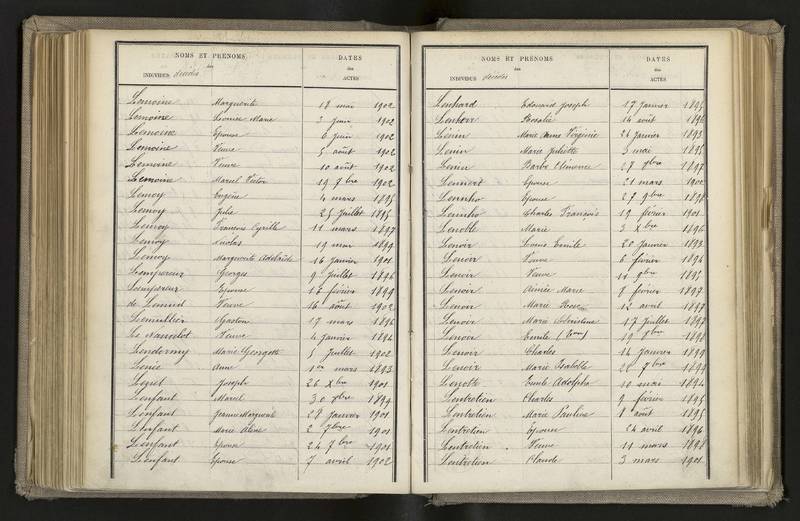 NOMS ET PRÉNOMS
des
INDIVIDUS décédés
DATES
des
ACTES
Lemoine Marguerite 18 mai 1902
Lemoine Louise Marie 3 juin 1902
Lemoine Epouse 6 juin 1902
Lemoine Veuve 5 août 1902
Lemoine Veuve 10 août 1902
Lemoine Marcel Victor 19 9bre 1902
Lemoy Eugène 4 mars 1895
Lemoy Julie 25 Juillet 1895
Lemoy François Cyrille 11 mars 1897
Lemoy Nicolas 19 mai 1899
Lemoy Marguerite Adelaïde 16 janvier 1901
Lempereur Georges 9 Juillet 1896
Lempereur Epouse 18 février 1899
de Veuve 16 août 1902
Gaston 17 mars 1896
Le Veuve 4 janvier 1894
Lendormy Marie Georgette 5 Juillet 1902
Lenée Anne 1er mars 1893
Joseph 26 Xbre 1901
Lenfant Marcel 30 1899
Lenfant Jeanne Margueritte 28 janvier 1901
Lenfant Marie 2 7bre 1901
Lenfant Epouse 24 7bre 1901
Lenfant Epouse 7 avril 1902
NOMS ET PRÉNOMS
des
INDIVIDUS décédés
DATES
des
ACTES
Lenhard Edouard Joseph 17 Janvier 1895
Rosalie 14 août 1896
Lénin Marie Anne Virginie 26 Janvier 1893
Lenin Marie Juliette 3 mai 1895
Lenin Barbe Clémence 27 9bre 1897
Epouse 21 mars 1902
Epouse 27 9bre 1898
Charles François 19 février 1901
Lenoble Marie 3 Xbre 1896
Lenoir Louis Emile 20 Janvier 1893
Lenoir Veuve 6 février 1896
Lenoir Veuve 11 9bre 1895
Lenoir Aimée Marie 8 février 1897
Lenoir Marie Rose 12 avril 1897
Lenoir Marie Christine 17 Juillet 1897
Lenoir Emile 19 9bre 1898
Lenoir Charles 14 Janvier 1899
Lenoir Marie Isabelle 20 1899
Emile Adolphe 10 mai 1894
Lentretien Charles 9 février 1895
Lentretien Marie Pauline 8 août 1895
Lentretien Epouse 24 avril 1896
Lentretien Veuve 11 mars 1898
Lentretien Claude 3 mars 1901